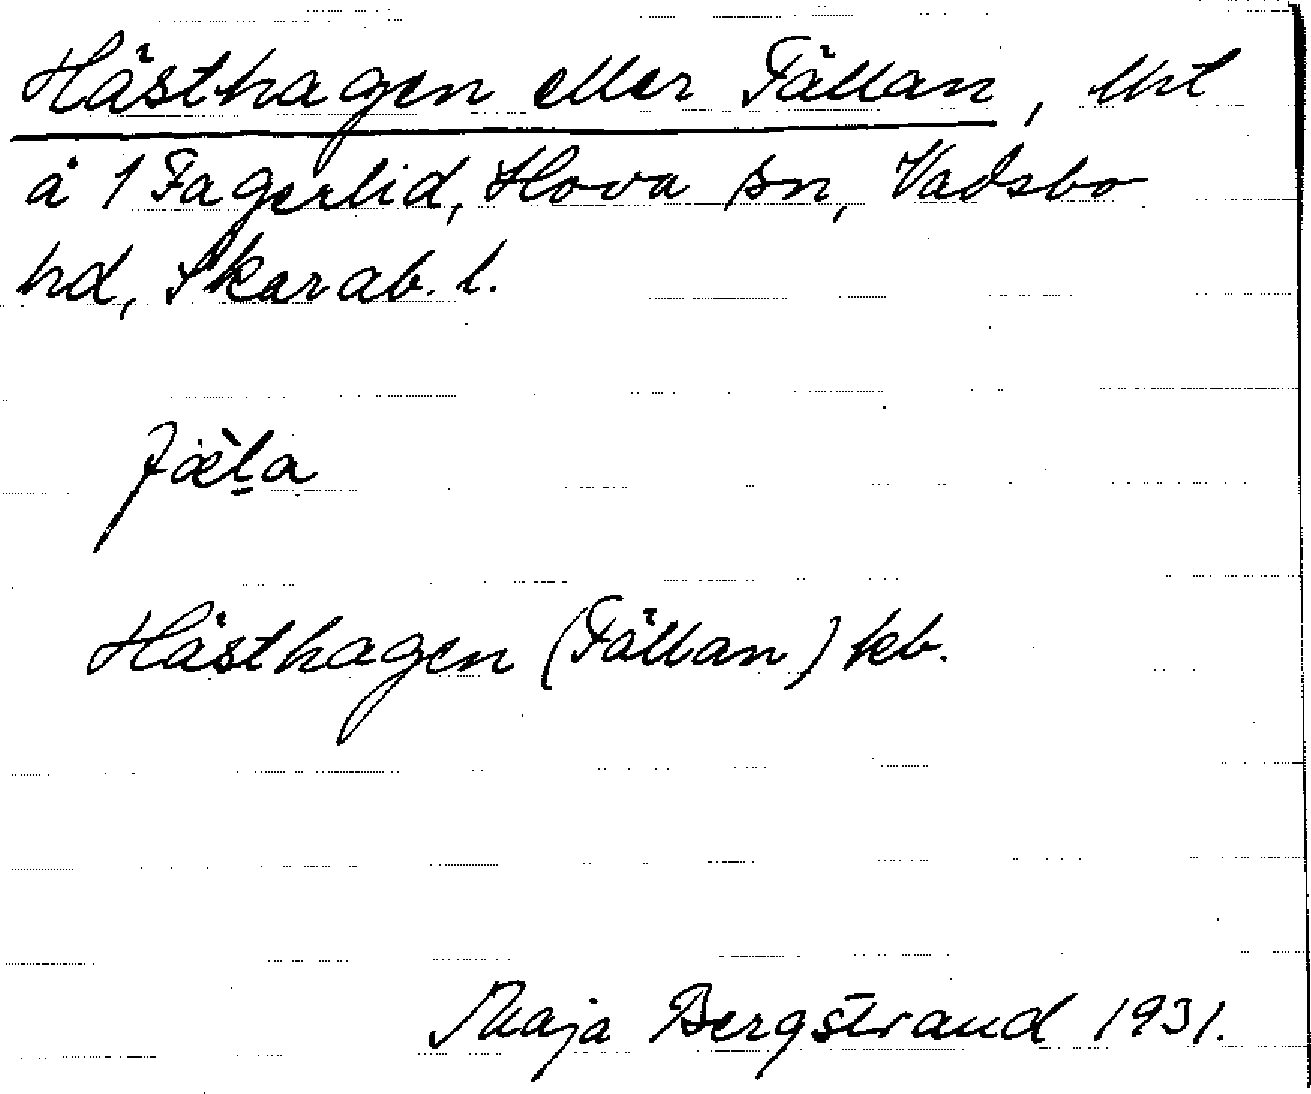 Hästhagen eller Fällan, lht
å 1 Fagerlid, Hova sn, Vadsbo
hd, Skarab. l.
Hästhagen (Fällan) kb.
Maja Bergstrand 1931.